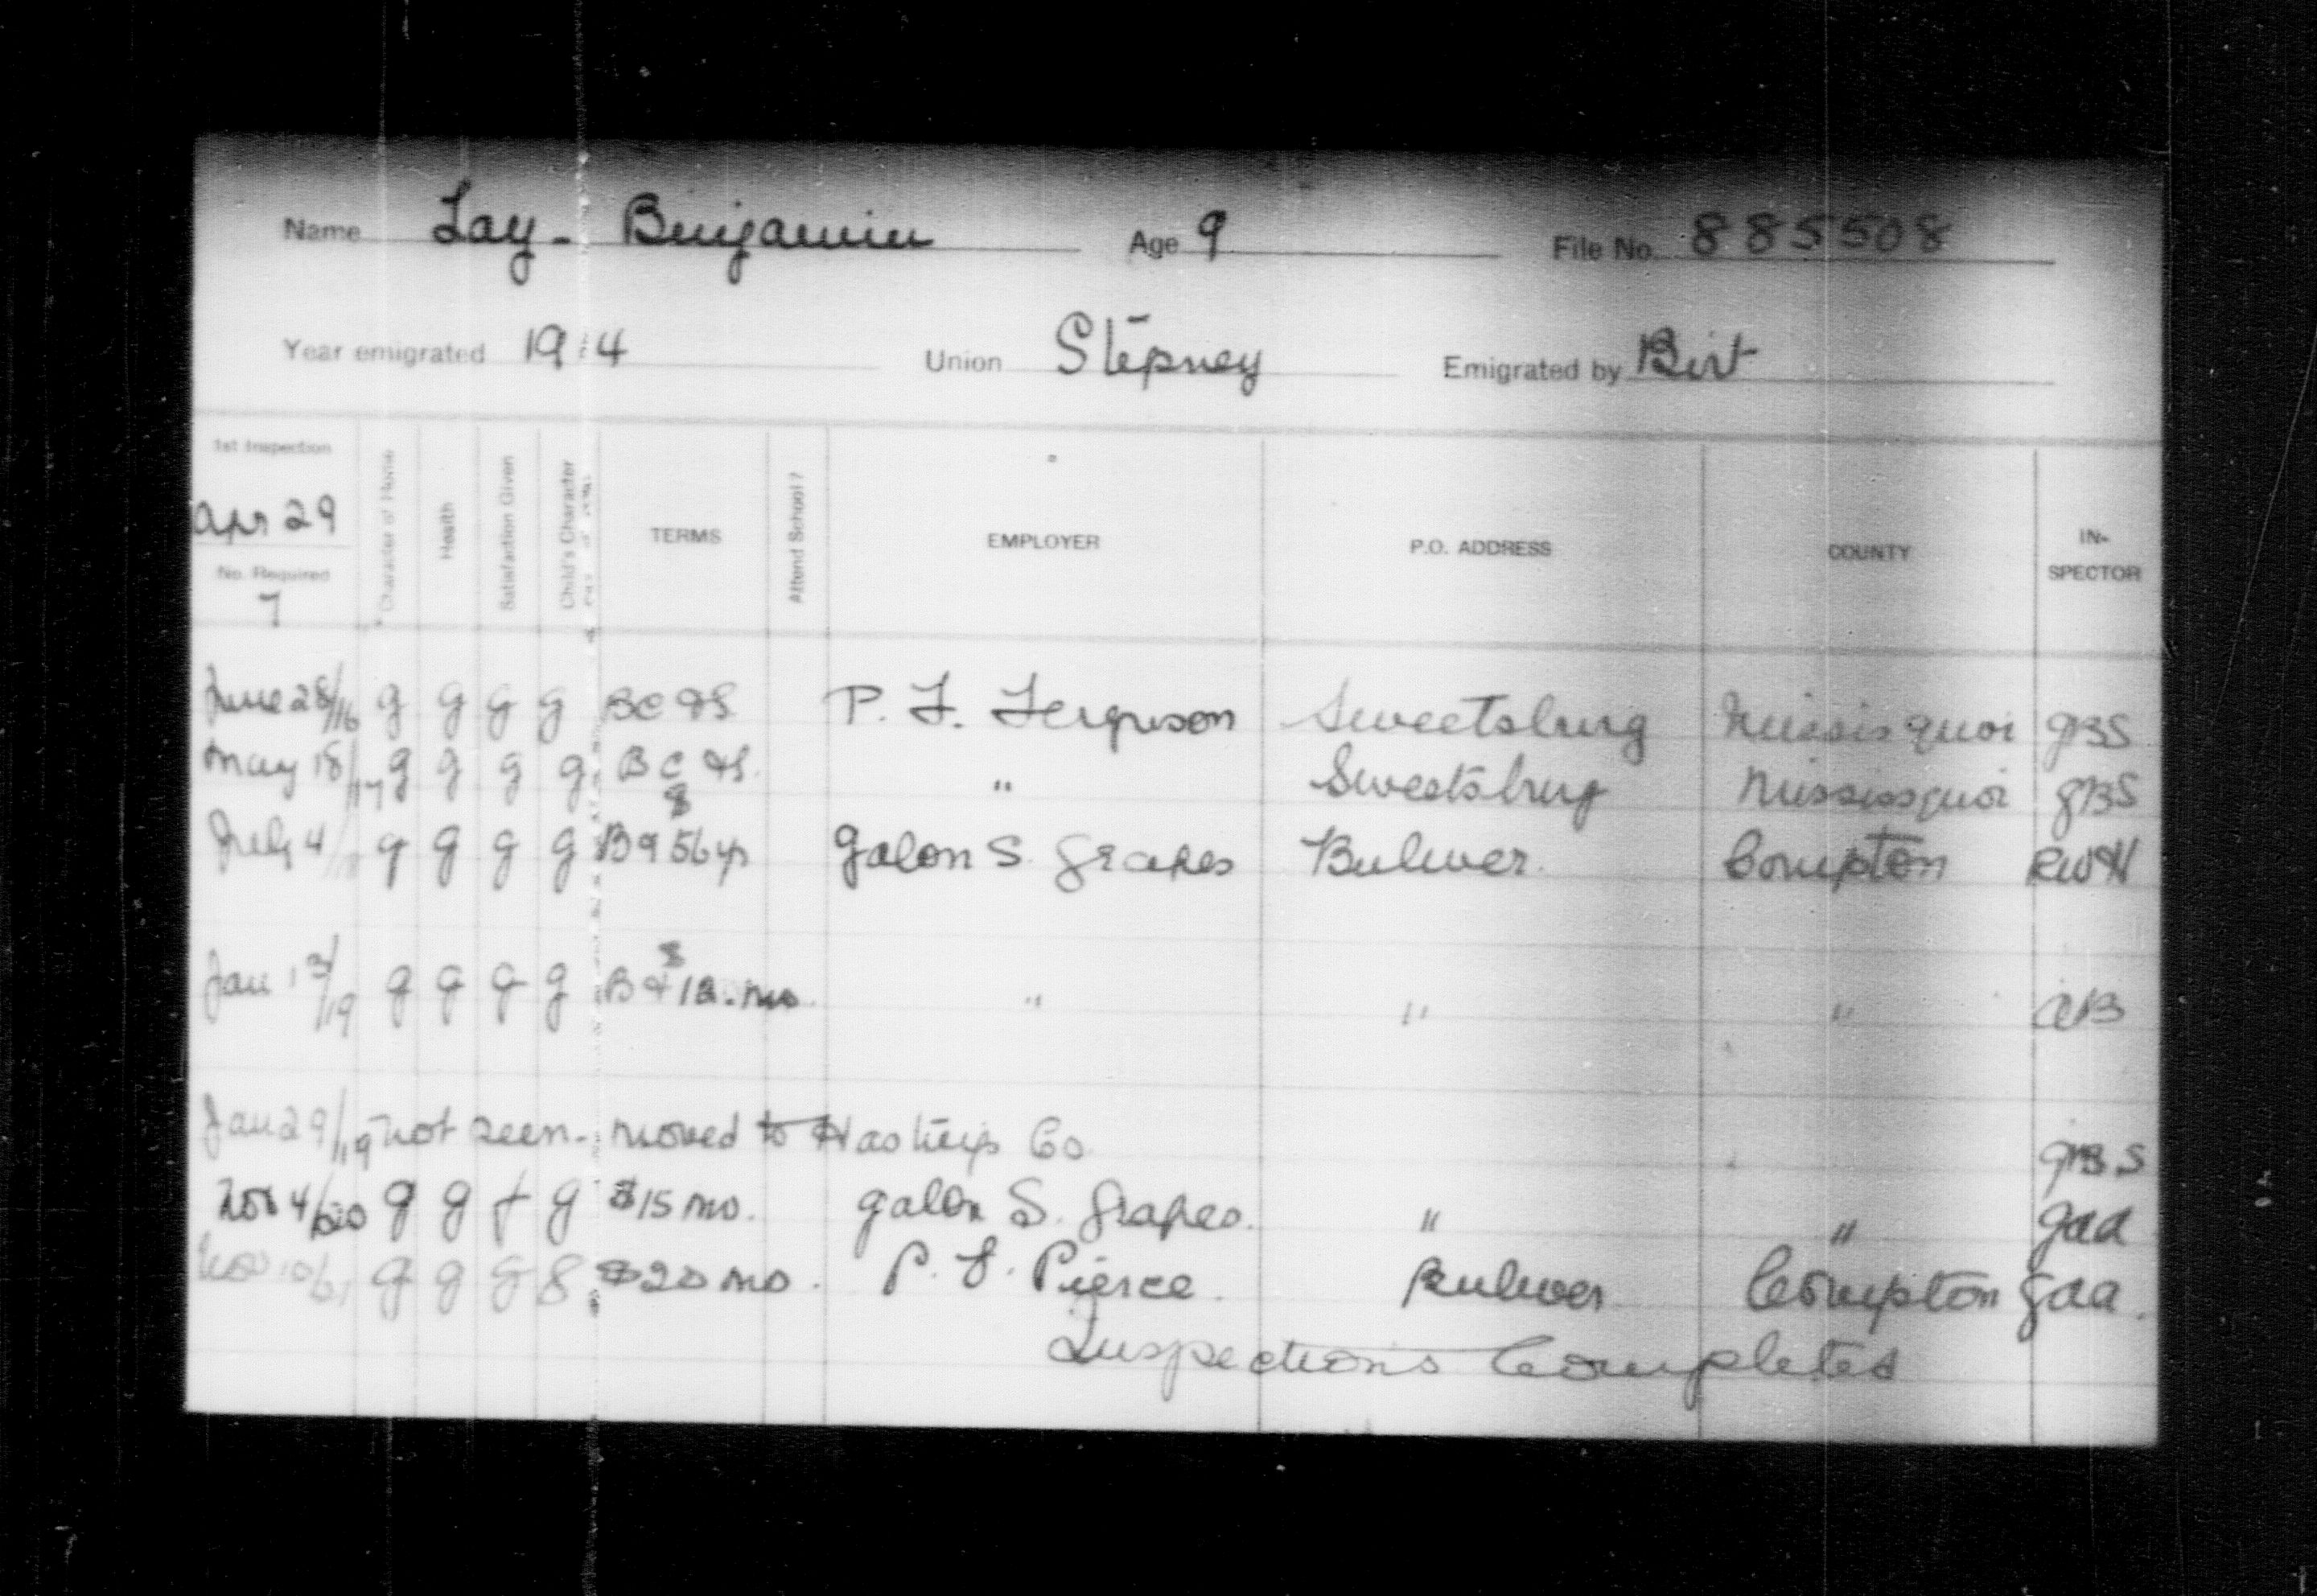 Name Lay - Benjamin Age 9 File No. 885508
Year emigrated 1914 Union Stepney Emigrated by Birt
1st Inspection
Apr 29
No. Required
7
Character of Home
Health
Satisfaction Given
Child's Character
TERMS
Attend School?
EMPLOYER
P.O. ADDRESS
COUNTY
IN-
SPECTOR
June 28/16 g g g g BC &S. P. F. Ferguson Sweetsburg Missisquoi GBS
May 18/17 g g g g BC &S. " Sweetsburg Missisquoi GBS
July 4/18 g g g g B & $56 yr Galon S. Grapes Bulwer. Compton RWH
Jan 13/19 g g g g B & $12. mo. " " " CB
Jan 29/19 not seen - moved to Hastings Co. GBS
Nov 4/20 g g f g $15 mo. Galon S. Grapes. " " GAA
Nov 10/21 g g g g $20 mo. P. L. Pierce. Bulwer Compton GAA.
Inspections Completed